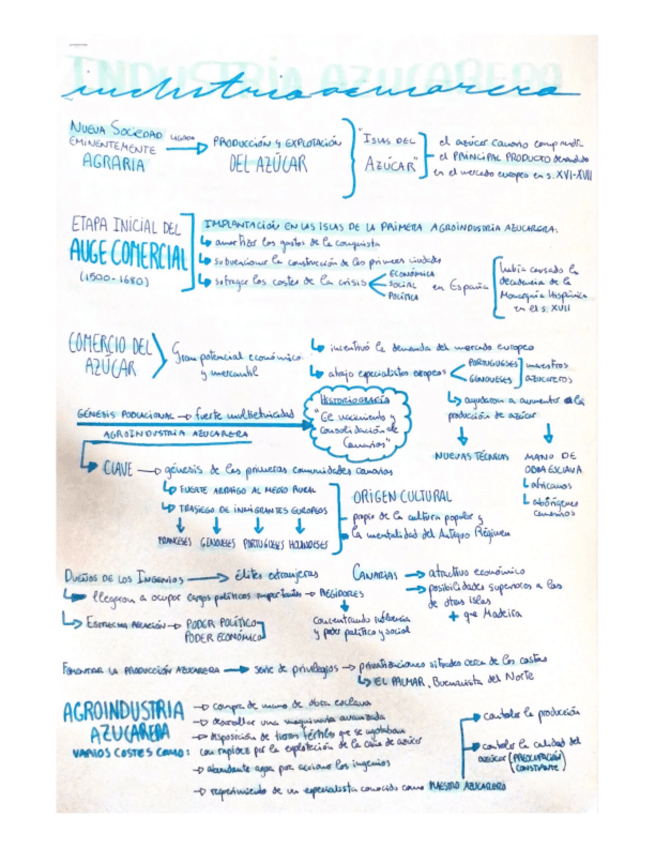 INDUSTRIA AZUCARERA
industria azucarera
NUEVA SOCIEDAD EMINENTEMENTE AGRARIA LIGADA → PRODUCCIÓN Y EXPLOTACIÓN DEL AZÚCAR
"ISLAS DEL AZÚCAR"
el azúcar canario
el PRINCIPAL PRODUCTO demandado
en el mercado europeo en s. XVI-XVII
ETAPA INICIAL DEL AUGE COMERCIAL (1500-1680)
IMPLANTACIÓN EN LAS ISLAS DE LA PRIMERA AGROINDUSTRIA AZUCARERA:
↳ amortizar los gastos de la conquista
↳ subvencionar la construcción de las primeras ciudades
↳ sufragar los costes de la crisis
ECONÓMICA
SOCIAL
POLÍTICA
en España
había causado la
decadencia de la
Monarquía Hispánica
en el s. XVII
COMERCIO DEL AZÚCAR
Gran potencial económico
y mercantil
↳ incentivó la demanda del mercado europeo
↳ atrajo especialistas europeos
PORTUGUESES
GENOVESES
maestros
azucareros
↳ ayudaron a aumentar la
producción de azúcar
NUEVAS TÉCNICAS
MANO DE
OBRA ESCLAVA
↳ africanos
↳ aborígenes
canarios
GÉNESIS POBLACIONAL → fuerte multietnicidad
AGROINDUSTRIA AZUCARERA
HISTORIOGRAFÍA
"El nacimiento y
consolidación de
Canarias"
CLAVE → génesis de las primeras comunidades canarias
↳ FUERTE ARRAIGO AL MEDIO RURAL
↳ TRASIEGO DE INMIGRANTES EUROPEOS
FRANCESES GENOVESES PORTUGUESES HOLANDESES
ORIGEN CULTURAL
papel de la cultura popular y
la mentalidad del Antiguo Régimen
DUEÑOS DE LOS INGENIOS → élites extranjeras
↳ llegaron a ocupar cargos políticos importantes → REGIDORES
concentrando influencia
y poder político y social
↳ ESTRECHA RELACIÓN → PODER POLÍTICO
PODER ECONÓMICO
CANARIAS → atractivo económico
→ posibilidades superiores a las
de otras islas
+ que Madeira
FOMENTAR LA PRODUCCIÓN AZUCARERA → serie de privilegios → situadas cerca de las costas
↳ EL PALMAR, Buenavista del Norte
AGROINDUSTRIA AZUCARERA
VARIOS COSTES COMO:
→ compra de mano de obra esclava
→ desarrollar una maquinaria avanzada
→ disposición de tierras fértiles que se agotaban
con rapidez por la explotación de la caña de azúcar
→ abundante agua para accionar los ingenios
→ requerimiento de un especialista conocido como MAESTRO AZUCARERO
→ controlar la producción
→ controlar la calidad del
azúcar (PREOCUPACIÓN CONSTANTE)